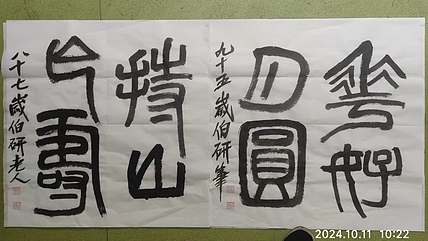 花好
月圓
九十五歲伯研筆
持山
壽
八十七歲伯研老人
2024.10.11 10:22